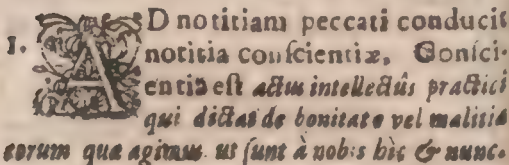 I. AD notitiam peccati conducit
notitia conſcientiæ, Conſci-
entia eſt actus intellectûs practici
qui dictat de bonitate vel malitia
eorum quæ agimus ut ſunt à nobis hic & nunc.